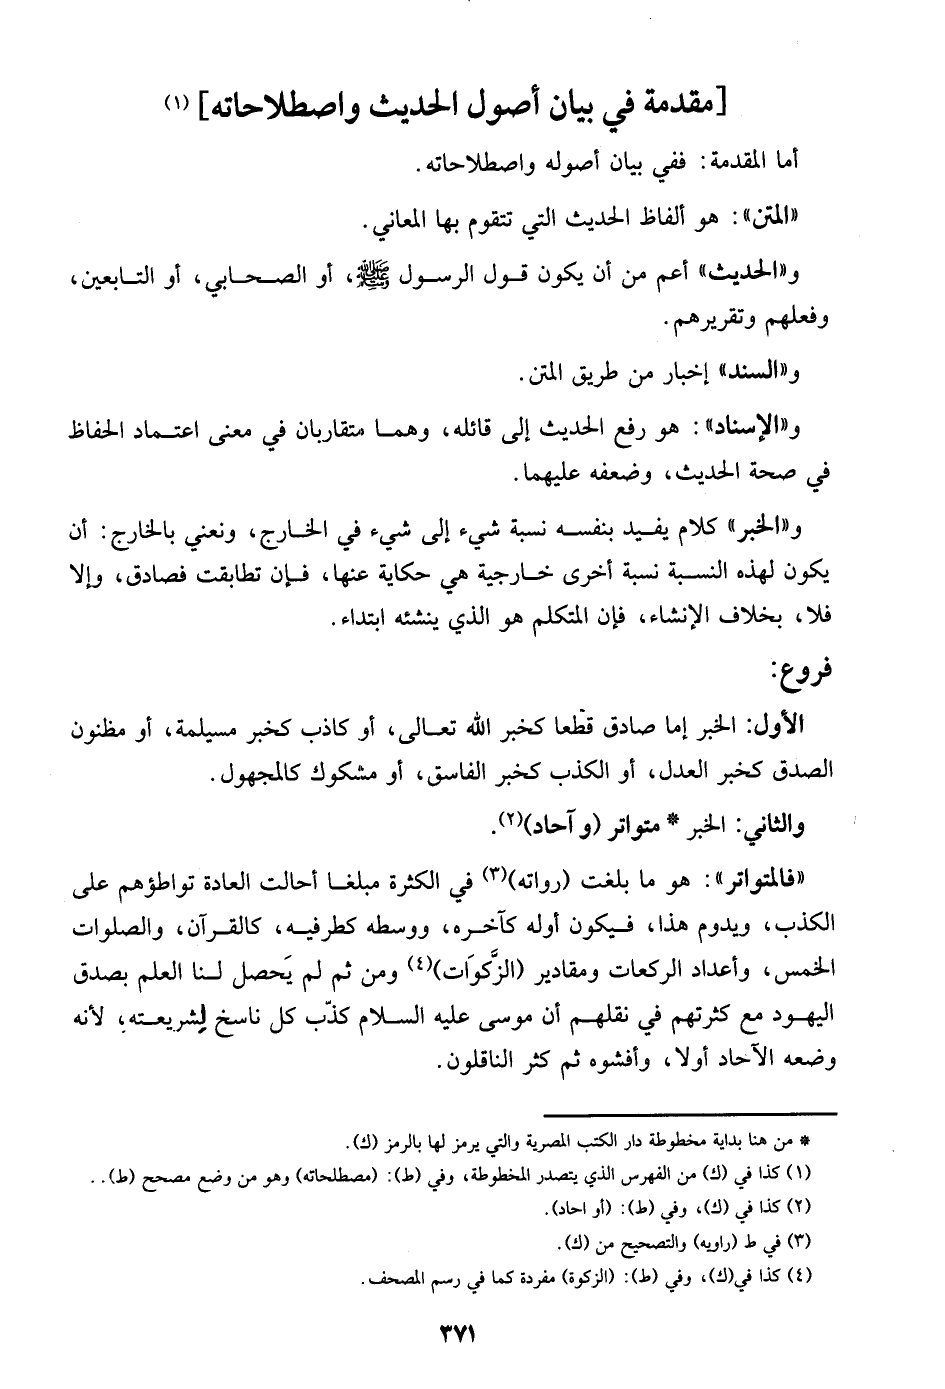 [مقدمة في بيان أصول الحديث واصطلاحاته] (١)
أما المقدمة: ففي بيان أصوله واصطلاحاته.
«المتن»: هو ألفاظ الحديث التي تتقوم بها المعاني.
و«الحديث» أعم من أن يكون قول الرسول ﷺ، أو الصحابي، أو التابعين،
وفعلهم وتقريرهم.
و«السند» إخبار من طريق المتن.
و«الإسناد»: هو رفع الحديث إلى قائله، وهما متقاربان في معنى اعتماد الحفاظ
في صحة الحديث، وضعفه عليهما.
و«الخبر» كلام يفيد بنفسه نسبة شيء إلى شيء في الخارج، ونعني بالخارج: أن
يكون لهذه النسبة نسبة أخرى خارجية هي حكاية عنها، فإن تطابقت فصادق، وإلا
فلا، بخلاف الإنشاء، فإن المتكلم هو الذي ينشئه ابتداء.
فروع:
الأول: الخبر إما صادق قطعا كخبر الله تعالى، أو كاذب كخبر مسيلمة، أو مظنون
الصدق كخبر العدل، أو الكذب كخبر الفاسق، أو مشكوك كالمجهول.
والثاني: الخبر * متواتر (و آحاد)(٢).
«فالمتواتر»: هو ما بلغت (رواته)(٣) في الكثرة مبلغا أحالت العادة تواطؤهم على
الكذب، ويدوم هذا، فيكون أوله كآخره، ووسطه كطرفيه، كالقرآن، والصلوات
الخمس، وأعداد الركعات ومقادير (الزَّكوَات)(٤) ومن ثم لم يَحصل لنا العلم بصدق
اليهود مع كثرتهم في نقلهم أن موسى عليه السلام كذّب كل ناسخ لِشريعته، لأنه
وضعه الآحاد أولا، وأفشوه ثم كثر الناقلون.
* من هنا بداية مخطوطة دار الكتب المصرية والتي يرمز لها بالرمز (ك).
(١) كذا في (ك) من الفهرس الذي يتصدر المخطوطة، وفي (ط): (مصطلحاته) وهو من وضع مصحح (ط)..
(٢) كذا في (ك)، وفي (ط): (أو احاد).
(٣) في ط (راويه) والتصحيح من (ك).
(٤) كذا في(ك)، وفي (ط): (الزكوة) مفردة كما في رسم المصحف.
٣٧١